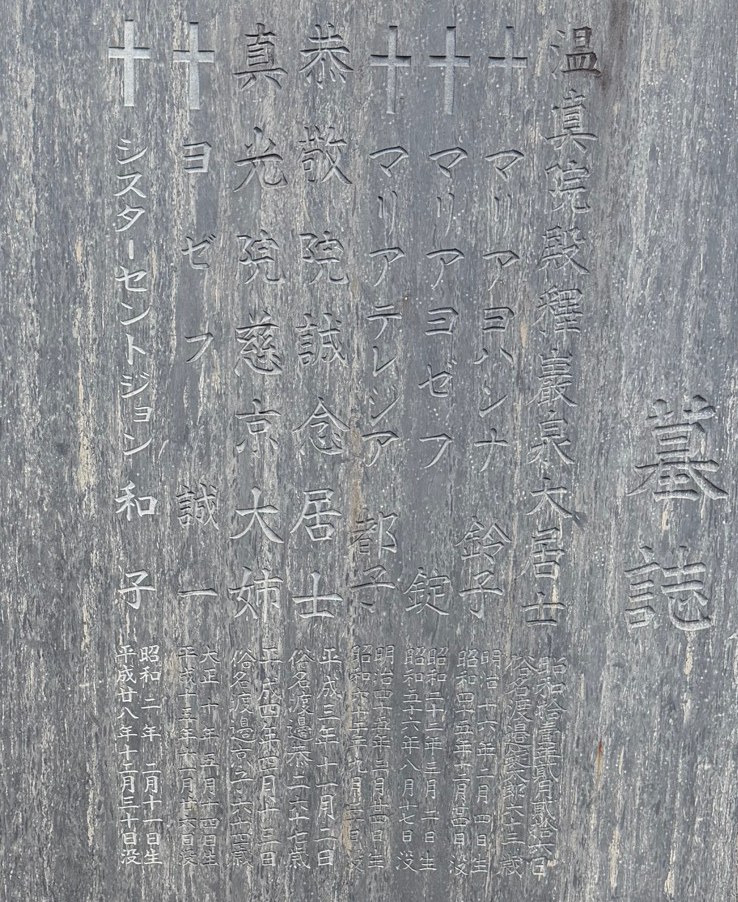 墓誌
温真院殿釋巖泉大居士
昭和拾壹年貳月貳拾六日
俗名渡邉錠太郎六十三歳
マリアヨハンナ 鈴子
明治十六年二月四日生
昭和四十五年十二月四日没
マリアヨゼフ 錠
昭和二十二年三月五日生
昭和五十六年八月十七日没
マリアテレジア 都子
明治四十五年二月廿四日生
恭敬院誠念居士
平成三年十一月二日
俗名渡邉恭二六十七歳
真光院慈京大姉
平成四年四月十三日
俗名渡邉京子六十四歳
ヨゼフ 誠一
大正十年五月十四日生
シスターセントジョン 和子
昭和二年二月十一日生
平成廿八年十二月三十日没